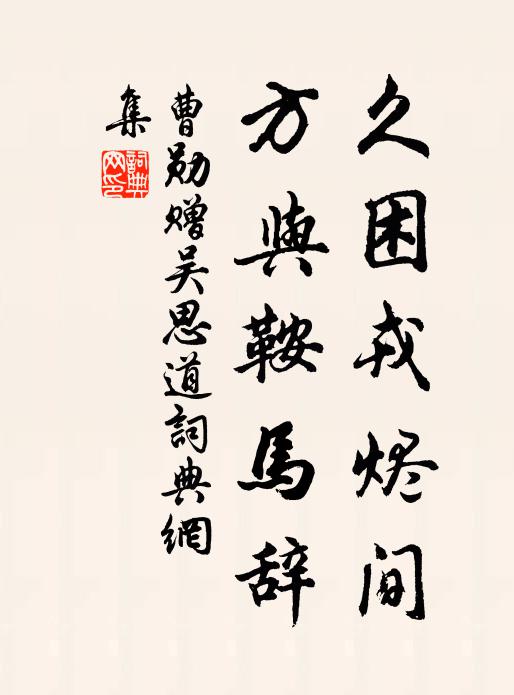 久困戎烬间
方與鞍馬辞
曹勛赠吴思道詞典網
集
詞典網印